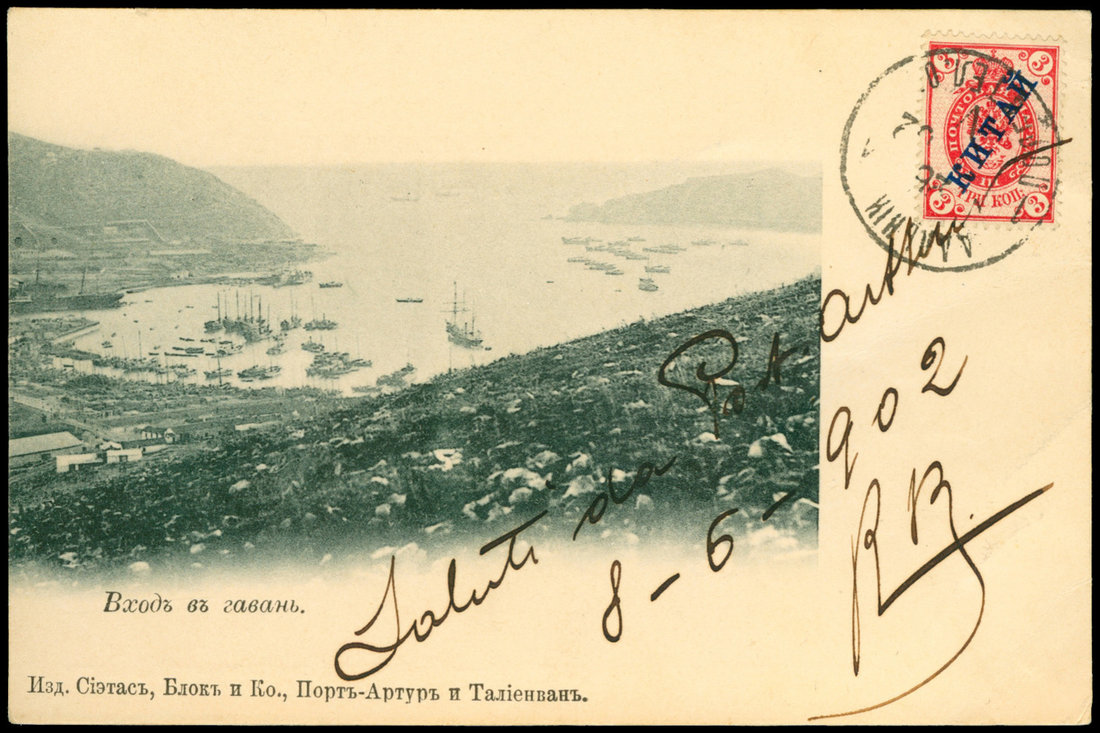 3 3
ПОЧТОВАЯ МАРКА
КИТАЙ
3 ТРИ КОП. 3
Saluti da Port Arthur
8-6-902
RB.
Входъ въ гавань.
Изд. Сіэтасъ, Блокъ и Ко., Портъ-Артуръ и Таліенванъ.